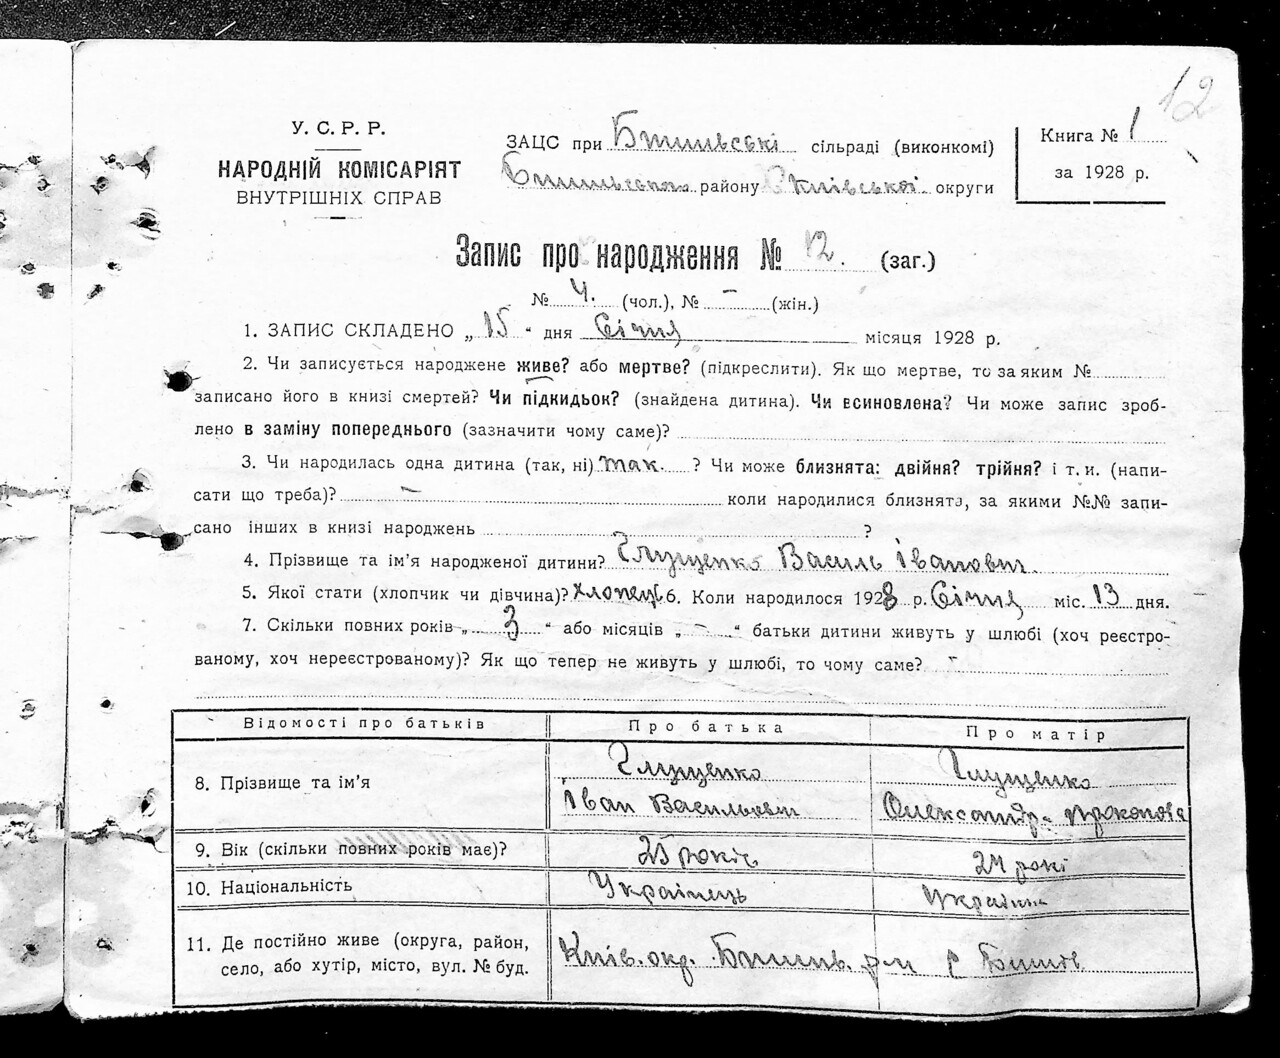 12
У. С. Р. Р.
НАРОДНІЙ КОМІСАРІЯТ
ВНУТРІШНІХ СПРАВ
ЗАЦС при Бишівські сільраді (виконкомі)
Бишівського району Київської округи
Книга № 1
за 1928 р.
Запис про народження № 12. (заг.)
№ 4. (чол.), № – (жін.)
1. ЗАПИС СКЛАДЕНО „ 15 “ дня Січня місяця 1928 р.
2. Чи записується народжене живе? або мертве? (підкреслити). Як що мертве, то за яким №
записано його в книзі смертей? Чи підкидьок? (знайдена дитина). Чи всиновлена? Чи може запис зроб-
лено в заміну попереднього (зазначити чому саме)?
3. Чи народилась одна дитина (так, ні) так ? Чи може близнята: двійня? трійня? і т. и. (напи-
сати що треба)? – коли народилися близнята, за якими №№ запи-
сано інших в книзі народжень ?
4. Прізвище та ім’я народженої дитини? Глущенко Василь Іванович
5. Якої стати (хлопчик чи дівчина)? хлопець 6. Коли народилося 1928 р. Січня міс. 13 дня.
7. Скільки повних років „ 3 “ або місяців „ – “ батьки дитини живуть у шлюбі (хоч реєстро-
ваному, хоч нереєстрованому)? Як що тепер не живуть у шлюбі, то чому саме? –
Відомості про батьків Про батька Про матір
8. Прізвище та ім’я Глущенко Іван Васильович Глущенко Олександра Прокопова
9. Вік (скільки повних років має)? 25 років 24 рокі
10. Національність Українець Українка
11. Де постійно живе (округа, район, село, або хутір, місто, вул. № буд. Київ. окр. Бишив. р-н с Бишів